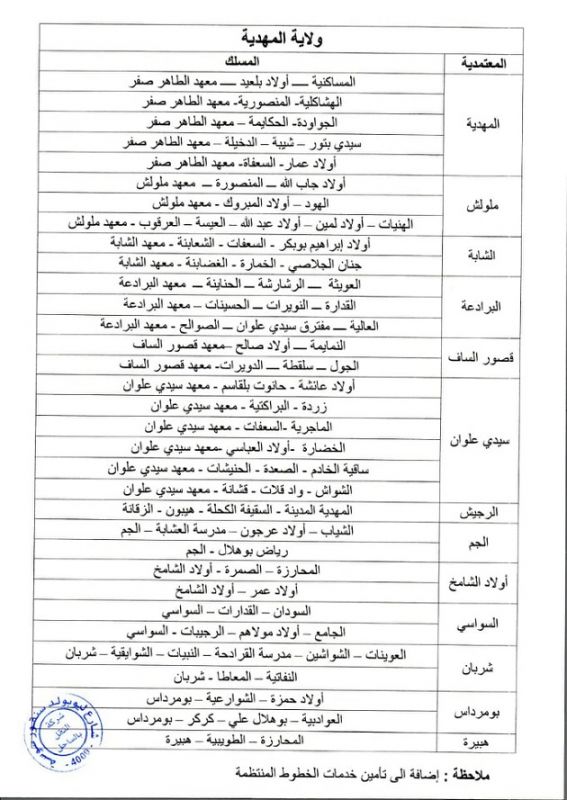 ولاية المهدية
المعتمدية
المسلك
المهدية
المساكنية ــ أولاد بلعيد ــ معهد الطاهر صفر
الهشاكلية- المنصورية- معهد الطاهر صفر
الجواودة- الحكايمة – معهد الطاهر صفر
سيدي بتور – شيبة – الدخيلة – معهد الطاهر صفر
أولاد عمار- السعفاة- معهد الطاهر صفر
ملولش
أولاد جاب الله ــ المنصورة ــ معهد ملولش
الهود – أولاد المبروك - معهد ملولش
الهنيات – أولاد لمين – أولاد عبد الله – العيسة – العرقوب - معهد ملولش
الشابة
أولاد إبراهيم بوبكر - السعفات - الشعابنة - معهد الشابة
جنان الجلاصي - الخمارة - الغضابنة - معهد الشابة
البرادعة
العويثة ــ الرشارشة ــ الحناينة ــ معهد البرادعة
القدارة – النويرات – الحسينات – معهد البرادعة
العالية ــ مفترق سيدي علوان ــ الصوالح - معهد البرادعة
قصور الساف
النمايمة ــ أولاد صالح –معهد قصور الساف
الجول ــ سلقطة ــ الدويرات- معهد قصور الساف
سيدي علوان
أولاد عائشة - حانوت بلقاسم - معهد سيدي علوان
زردة - البراكتية - معهد سيدي علوان
الماجرية -السعفات - معهد سيدي علوان
الخضارة -أولاد العباسي -معهد سيدي علوان
ساقية الخادم - الصعدة - الحنيشات - معهد سيدي علوان
الشواش - واد قلات - قشانة - معهد سيدي علوان
الرجيش
المهدية المدينة - السقيفة الكحلة - هيبون - الزقانة
الجم
الشياب – أولاد عرجون – مدرسة العشابة – الجم
رياض بوهلال - الجم
أولاد الشامخ
المحارزة – الصمرة - أولاد الشامخ
أولاد عمر – أولاد الشامخ
السواسي
السودان – القدارات – السواسي
الجامع – أولاد مولاهم – الرجيبات - السواسي
شربان
العوينات – الشواشين – مدرسة القرادحة – النبيات – الشوايقية – شربان
النفاتية – المعاطا - شربان
بومرداس
أولاد حمزة – الشوارعية – بومرداس
العوادبية – بوهلال علي – كركر – بومرداس
هبيرة
المحارزة – الطويبية – هبيرة
ملاحظة : إضافة الى تأمين خدمات الخطوط المنتظمة
شركة
النقل
بالساحل
شارع ليوبولد سنغور سوسة
- 4000 -